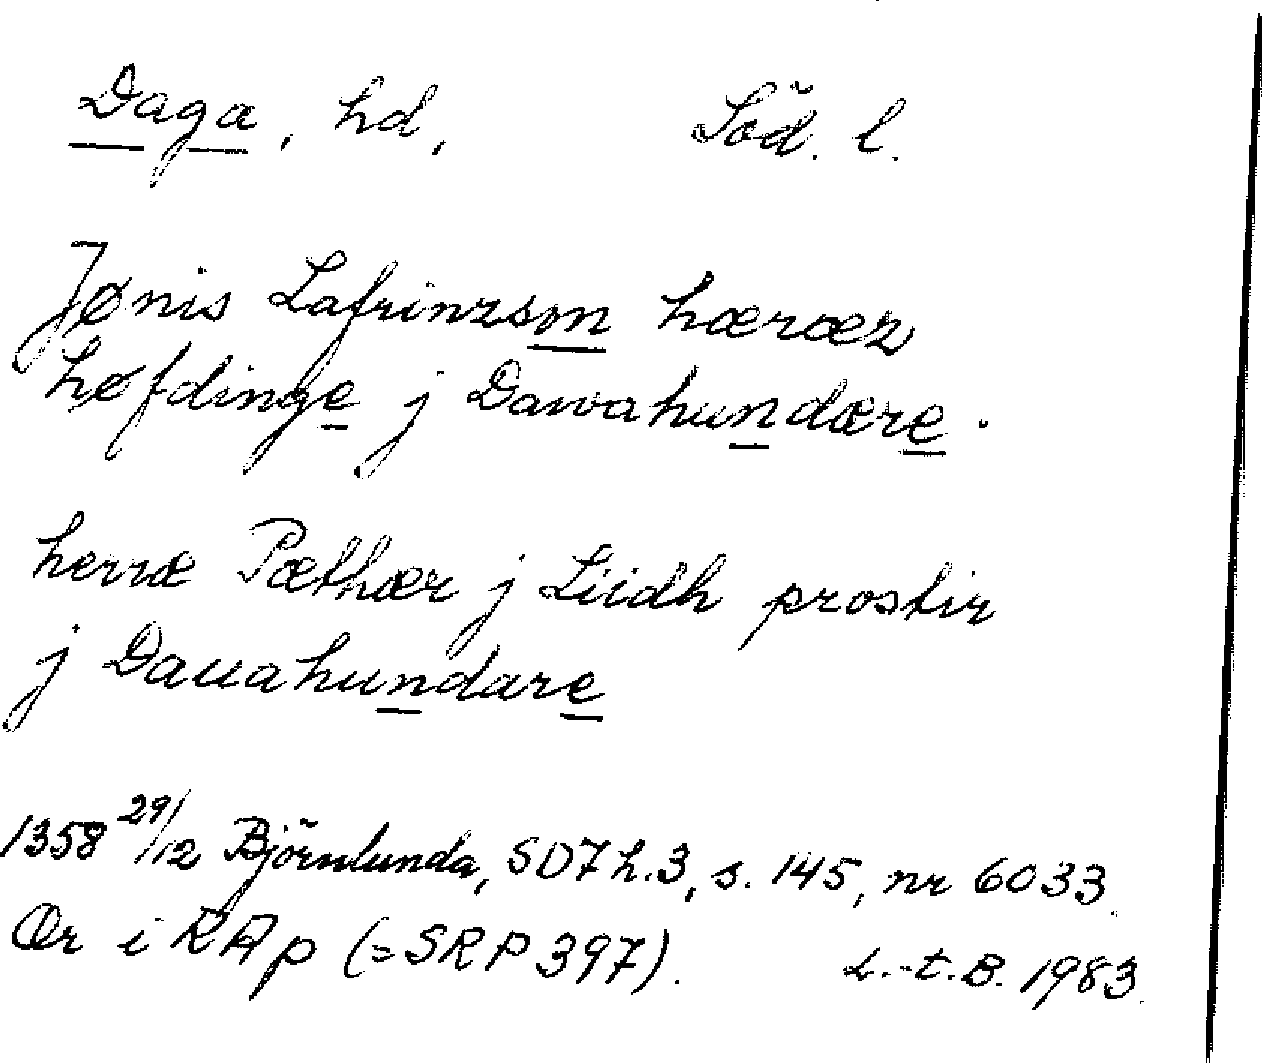 Daga, hd, Söd. l.
Jønis Lafrinzson hæræz
høfdinge j Dawahundære.
herræ Pæthær j Liidh prostir
j Dauahundare
1358 29/12 Björnlunda, SD7 h.3, s. 145, nr 6033.
Or i RAp (=SRP 397). L.-t.B. 1983.